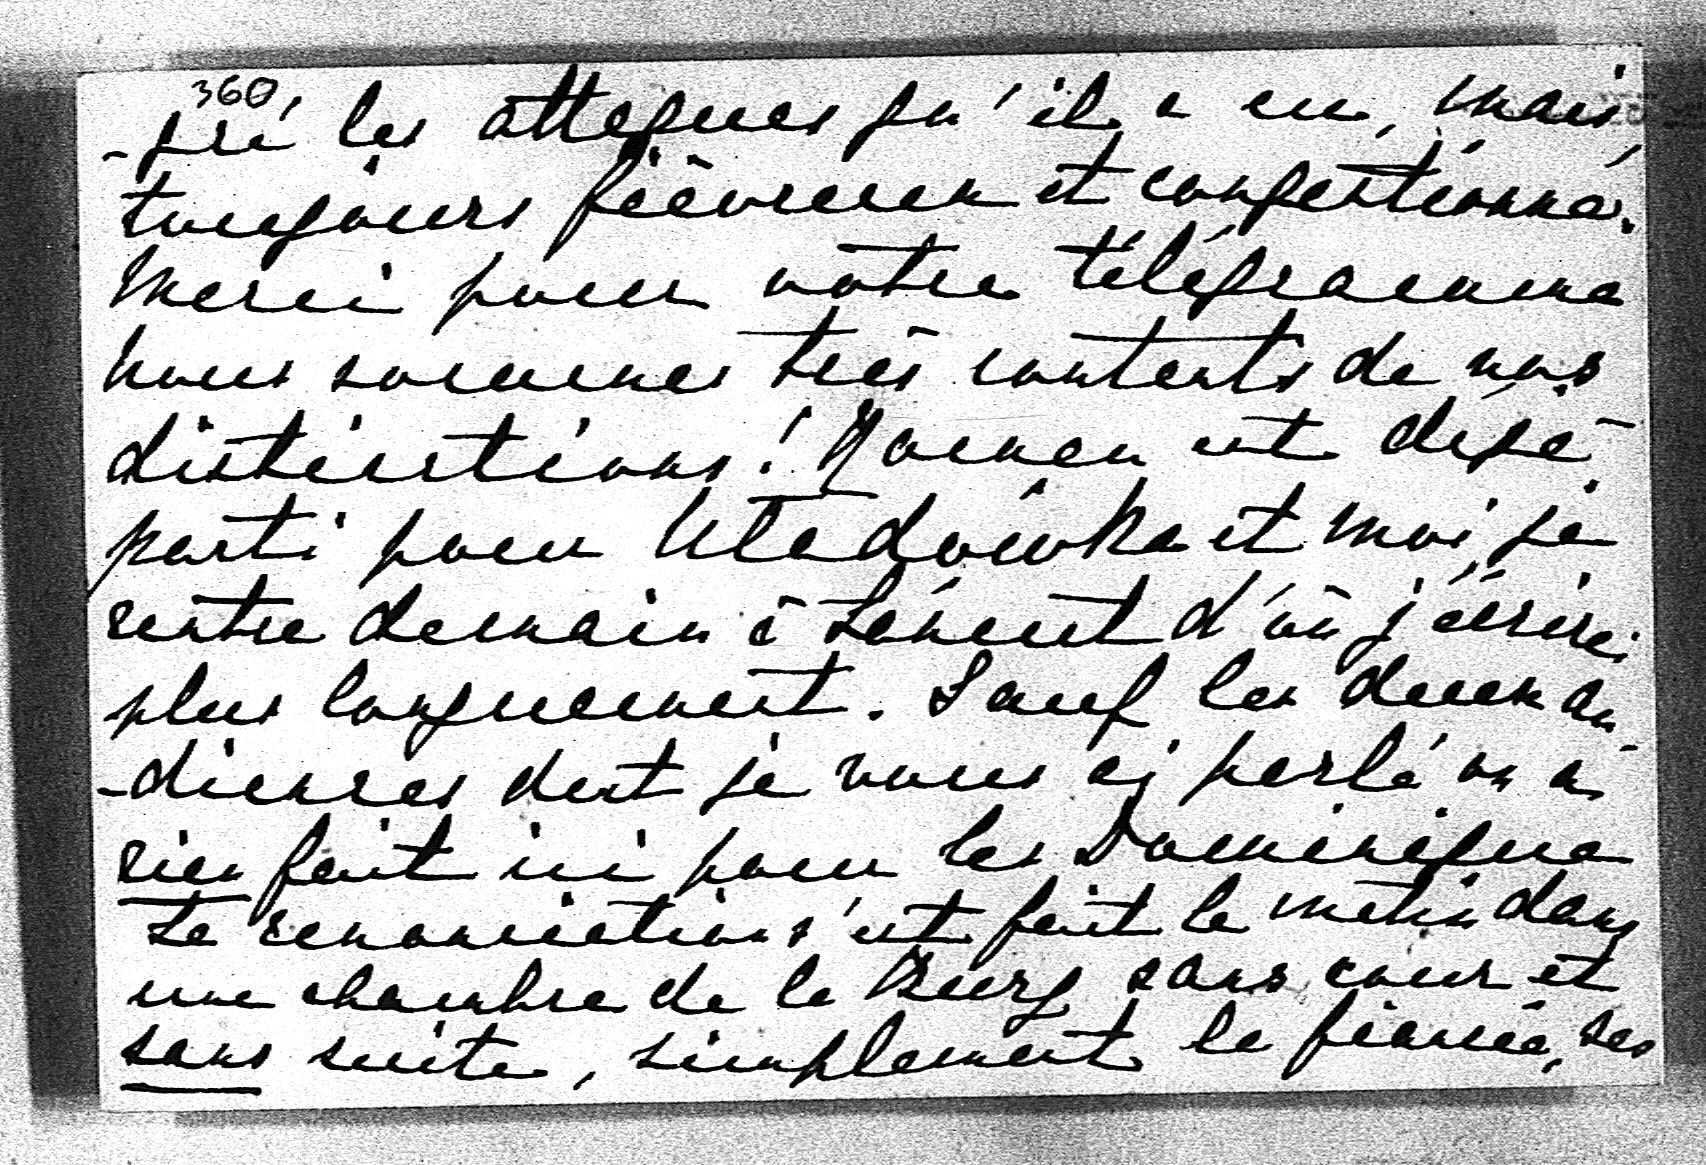 360
-gré les attaques qu'il a eu, mais
toujours fièvreux et congestionné.
Merci pour votre télégramme
nous sommes très contents de nos
distinctions! Roman est déjà
parti pour Wladówka et moi je
rentre demain à Łańcut d'où j'écrirai
plus longuement. Sauf les deux au
-diences dont je vous ai parlé on a
rien fait ici pour les Dominique
La renonciation s'est fait le matin dans
une chambre de la Burg sans cour et
sans suite, simplement le fiancé, ses